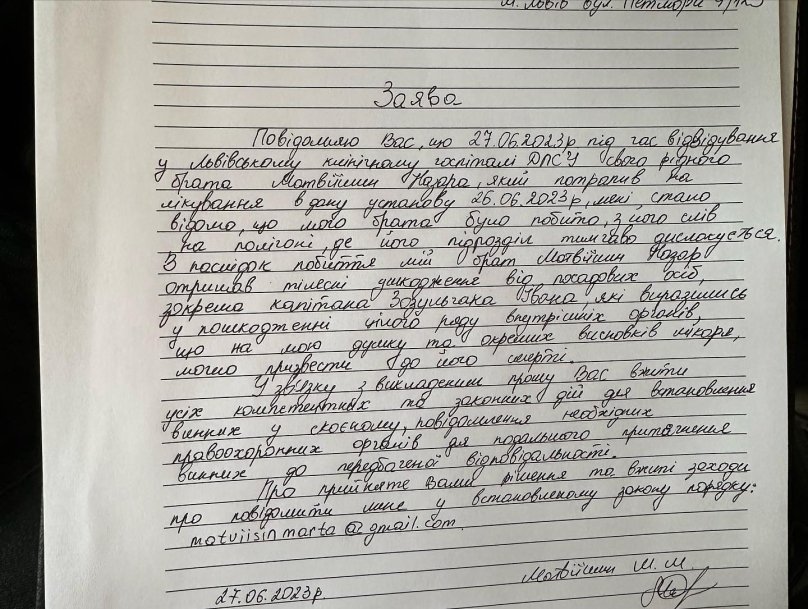 м. Львів вул. Петлюри
Заява
Повідомляю Вас, що 27.06.2023р під час відвідування
у Львівському клінічному госпіталі ДПСУ свого рідного
брата Матвіїшин Назара, який потрапив на
лікування в дану установу 26.06.2023р, мені стало
відомо, що мого брата було побито, з його слів
на полігоні, де його підрозділ тимчасово дислокується.
В послідок побиття мій брат Матвіїшин Назар
отримав тілесні ушкодження від посадових осіб,
зокрема капітана Зазульчака Івана, які виразились
у пошкодженні цілого ряду внутрішніх органів,
що на мою думку та окремих висновків лікаря,
могло призвести до його смерті.
У зв'язку з викладеним прошу Вас вжити
усіх компетентних та законних дій для встановлення
винних у скоєному, повідомлення необхідних
правоохоронних органів для подального притягнення
винних до передбаченої відповідальності.
Про прийняте Вами рішення та вжиті заходи
про повідомити мене у встановленому закону порядку:
matviisinmarta@gmail.com.
Матвіїшин М. М.
27.06.2023р.